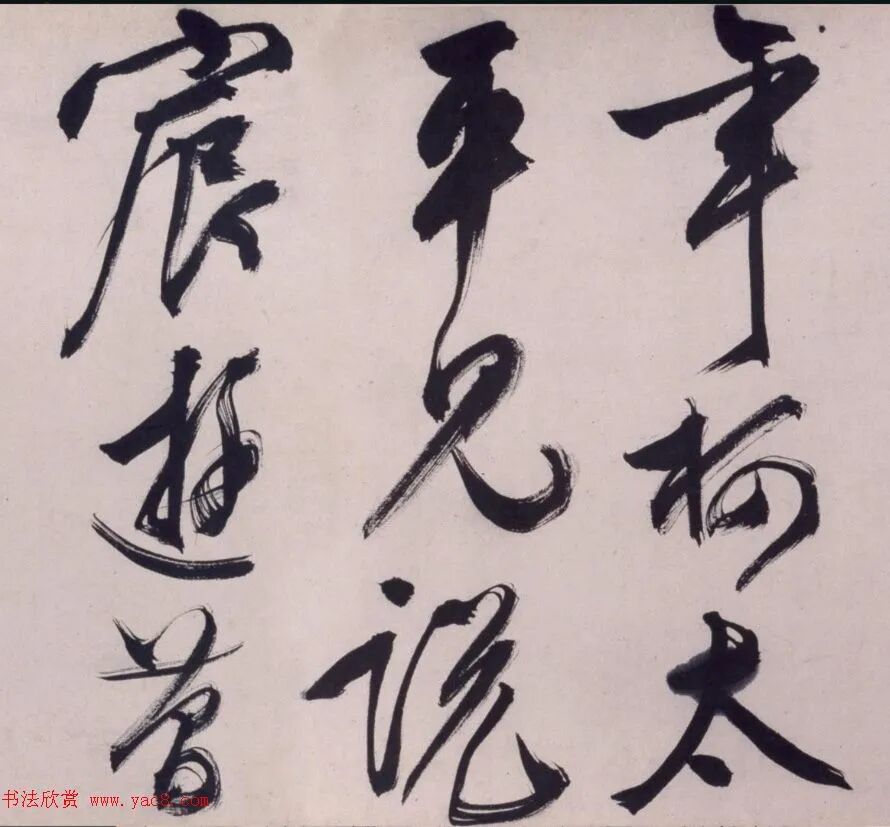 年柯太
平見說
宸遊
书法欣赏 www.yac8.com